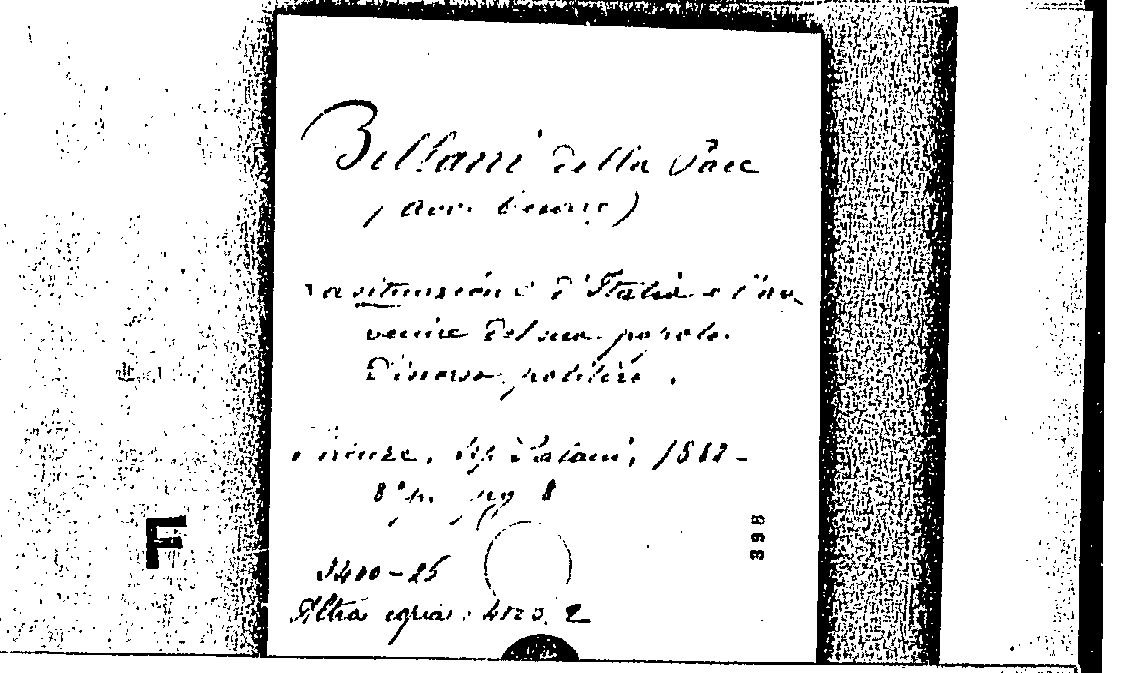 Bellani della Pace
(avv.
La situazione d'Italia e l'av-
venire del suo popolo.
Discorso politico.
Firenze, tip. Salani, 1882-
8° p. pag 8
F
398
5400-25
Altra copia: 4120. 2